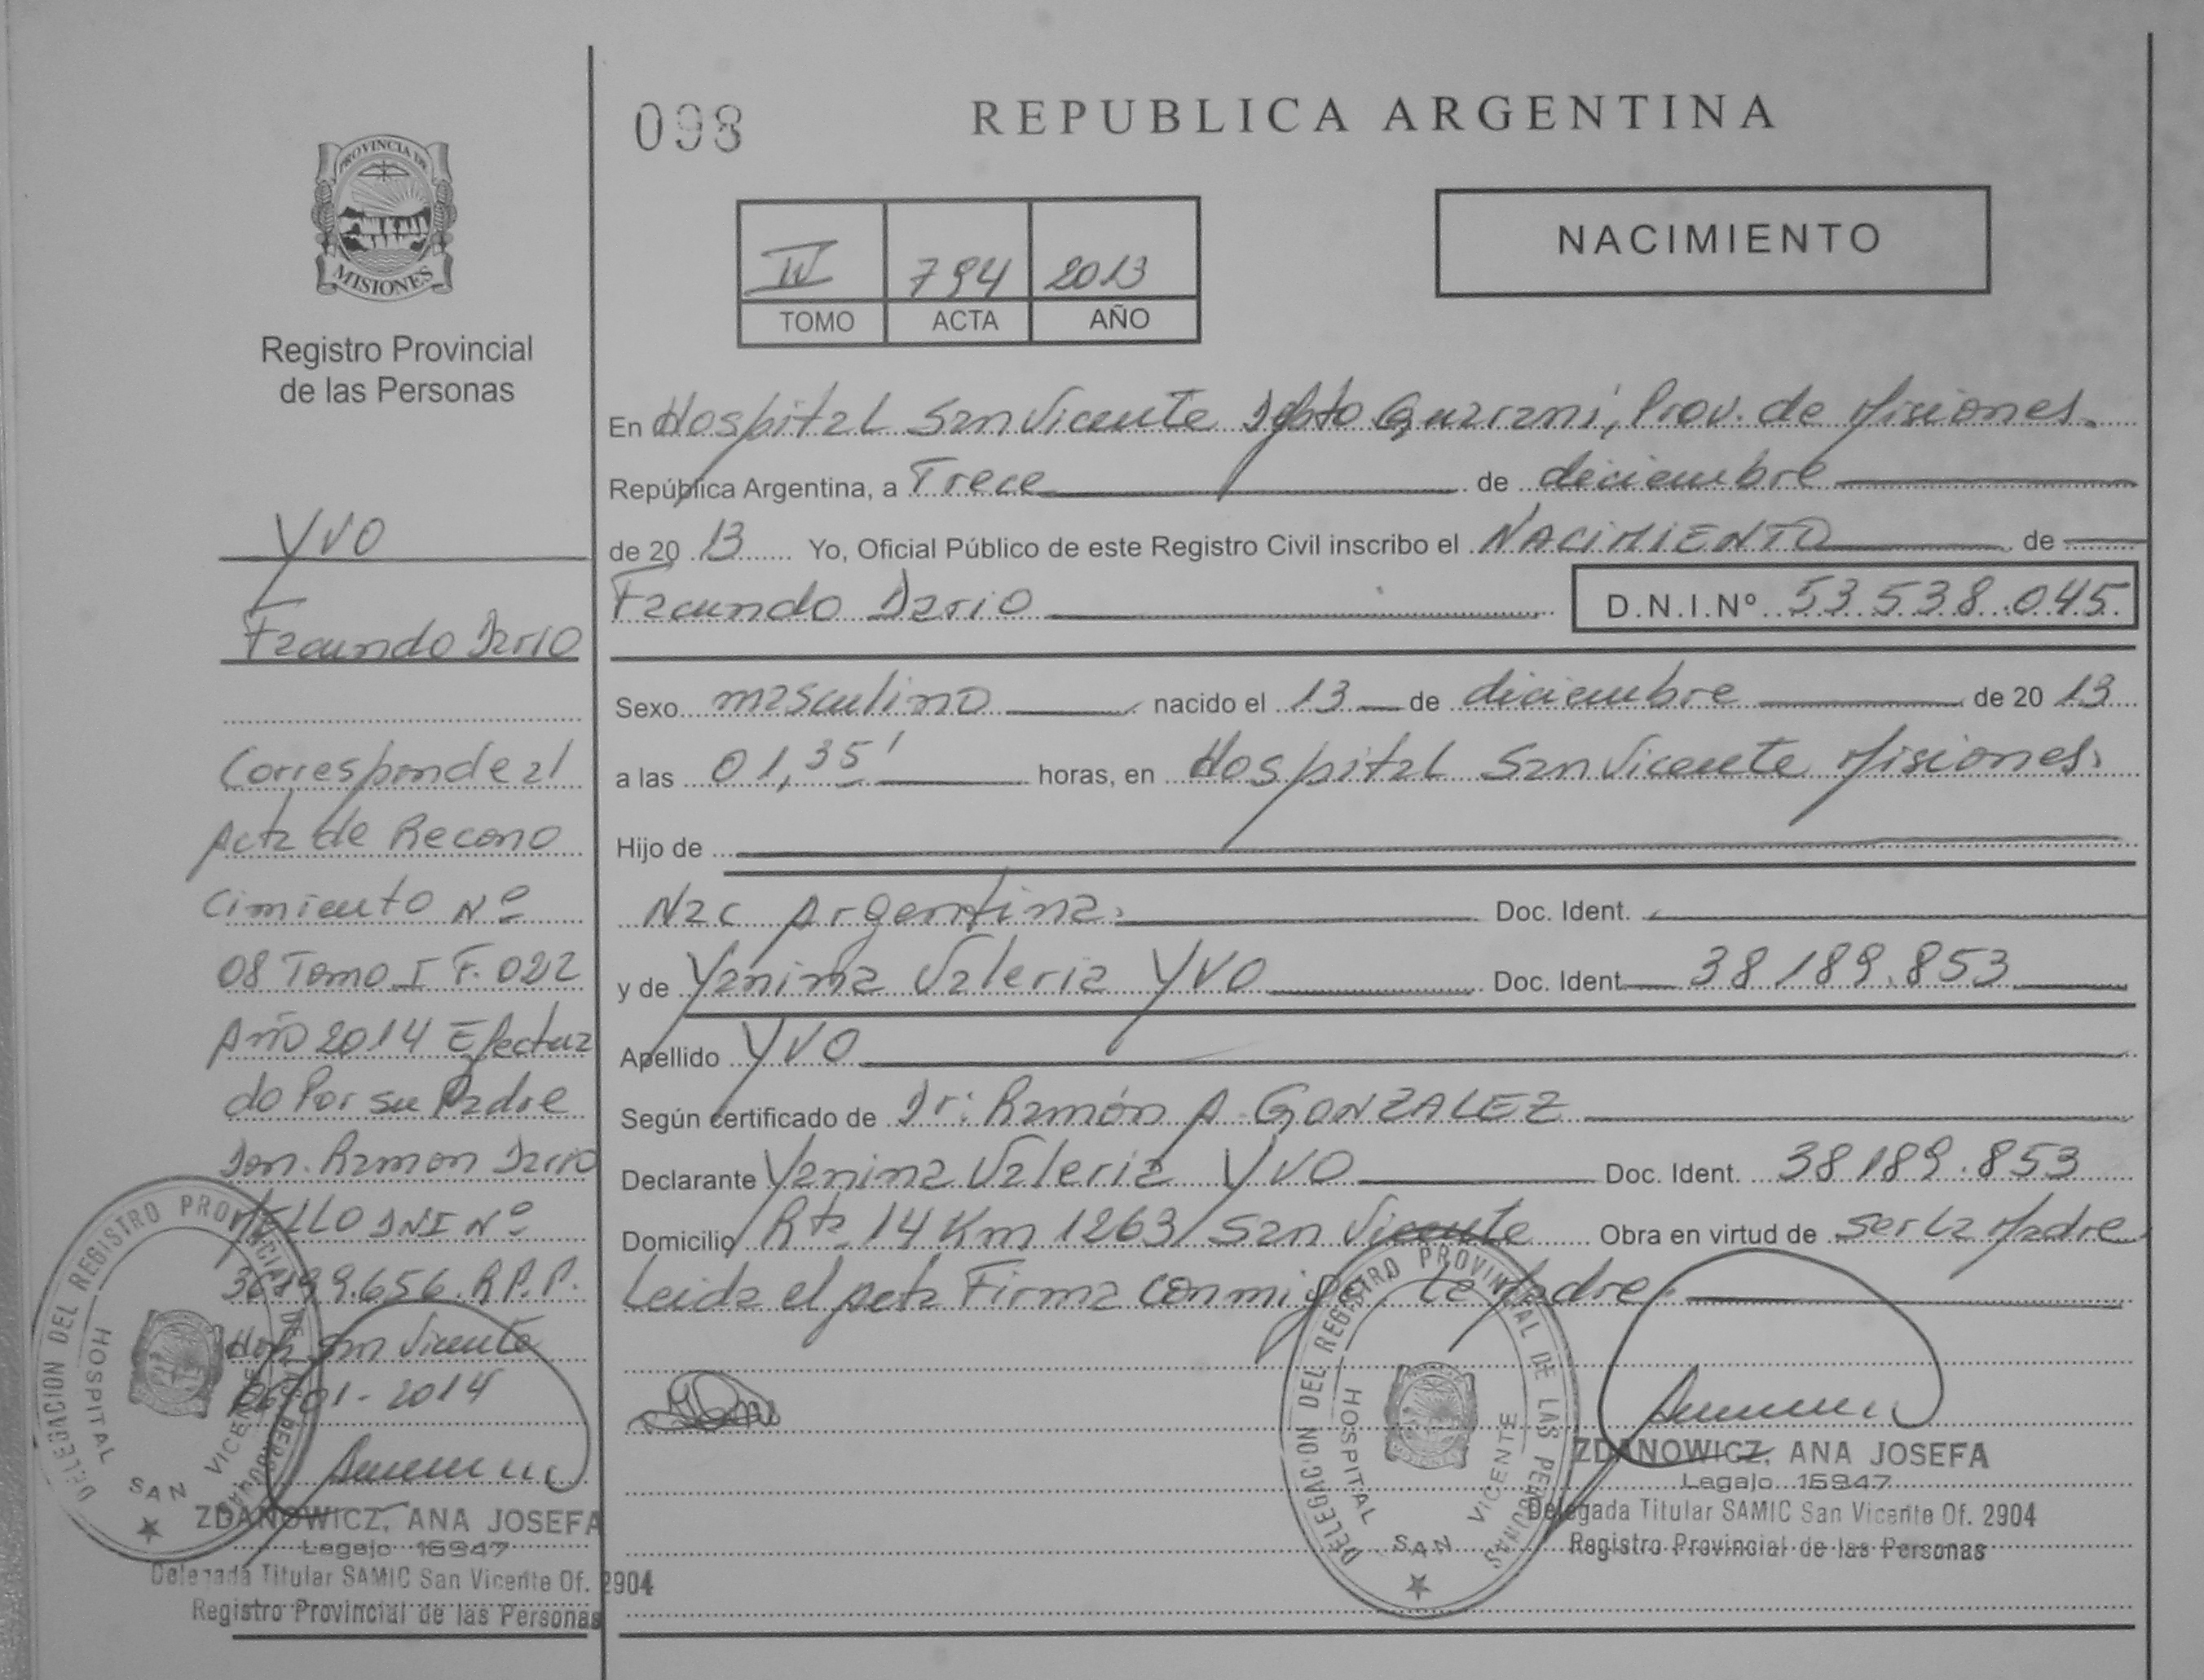 PROVINCIA DE
MISIONES
Registro Provincial
de las Personas
YVO
Facundo Dario
Corresponde al
Acta de Recono
cimiento Nº
08 Tomo I F. 022
Año 2014 Efectua
do Por su Padre
Don. Ramon Dario
Nº
.656. R.P.P.
San Vicente
01-2014
ZDANOWICZ, ANA JOSEFA
Legajo 15947
Delegada Titular SAMIC San Vicente Of. 2904
Registro Provincial de las Personas
DELEGACION DEL REGISTRO PROVINCIAL DE LAS PERSONAS
HOSPITAL SAN VICENTE
098
REPUBLICA ARGENTINA
IV 794 2013
TOMO ACTA AÑO
NACIMIENTO
En Hospital San Vicente Dpto Guarani, Prov. de Misiones.
República Argentina, a Trece de diciembre
de 20 13 Yo, Oficial Público de este Registro Civil inscribo el NACIMIENTO de
Facundo Dario D.N.I.Nº 53.538.045
Sexo masculino nacido el 13 de diciembre de 20 13
a las 01,35' horas, en Hospital San Vicente Misiones.
Hijo de
Nac Argentina. Doc. Ident.
y de Yanina Valeria YVO Doc. Ident. 38189.853
Apellido YVO
Según certificado de Dr: Ramón A. GONZALEZ
Declarante Yanina Valeria YVO Doc. Ident. 38189.853
Domicilio Rta 14 Km 1263/San Vicente Obra en virtud de ser la Madre
Leida el acta Firma conmigo la Madre.
DELEGACION DEL REGISTRO PROVINCIAL DE LAS PERSONAS
HOSPITAL SAN VICENTE
ZDANOWICZ, ANA JOSEFA
Legajo 15947
Delegada Titular SAMIC San Vicente Of. 2904
Registro Provincial de las Personas